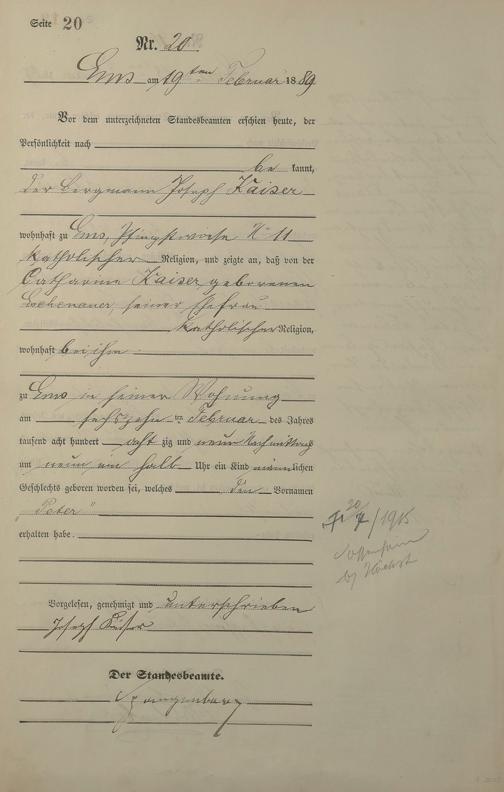 Seite 20
Nr. 20
Ems am 19ten Februar 1889
Vor dem unterzeichneten Standesbeamten erschien heute, der
Persönlichkeit nach
be kannt,
der Bergmann Joseph Kaiser
wohnhaft zu Ems, No 11
katholischer Religion, und zeigte an, daß von der
Catharine Kaiser geborenen
seiner Ehefrau
katholischer Religion,
wohnhaft bei ihm
zu Ems in seiner Wohnung
am sechszehnten Februar des Jahres
tausend acht hundert acht zig und neun Nachmittags
um neun ein halb Uhr ein Kind männlichen
Geschlechts geboren worden sei, welches den Vornamen
"Peter"
erhalten habe.
20
/1915
Vorgelesen, genehmigt und unterschrieben
Joseph Kaiser
Der Standesbeamte.
Spangenberg